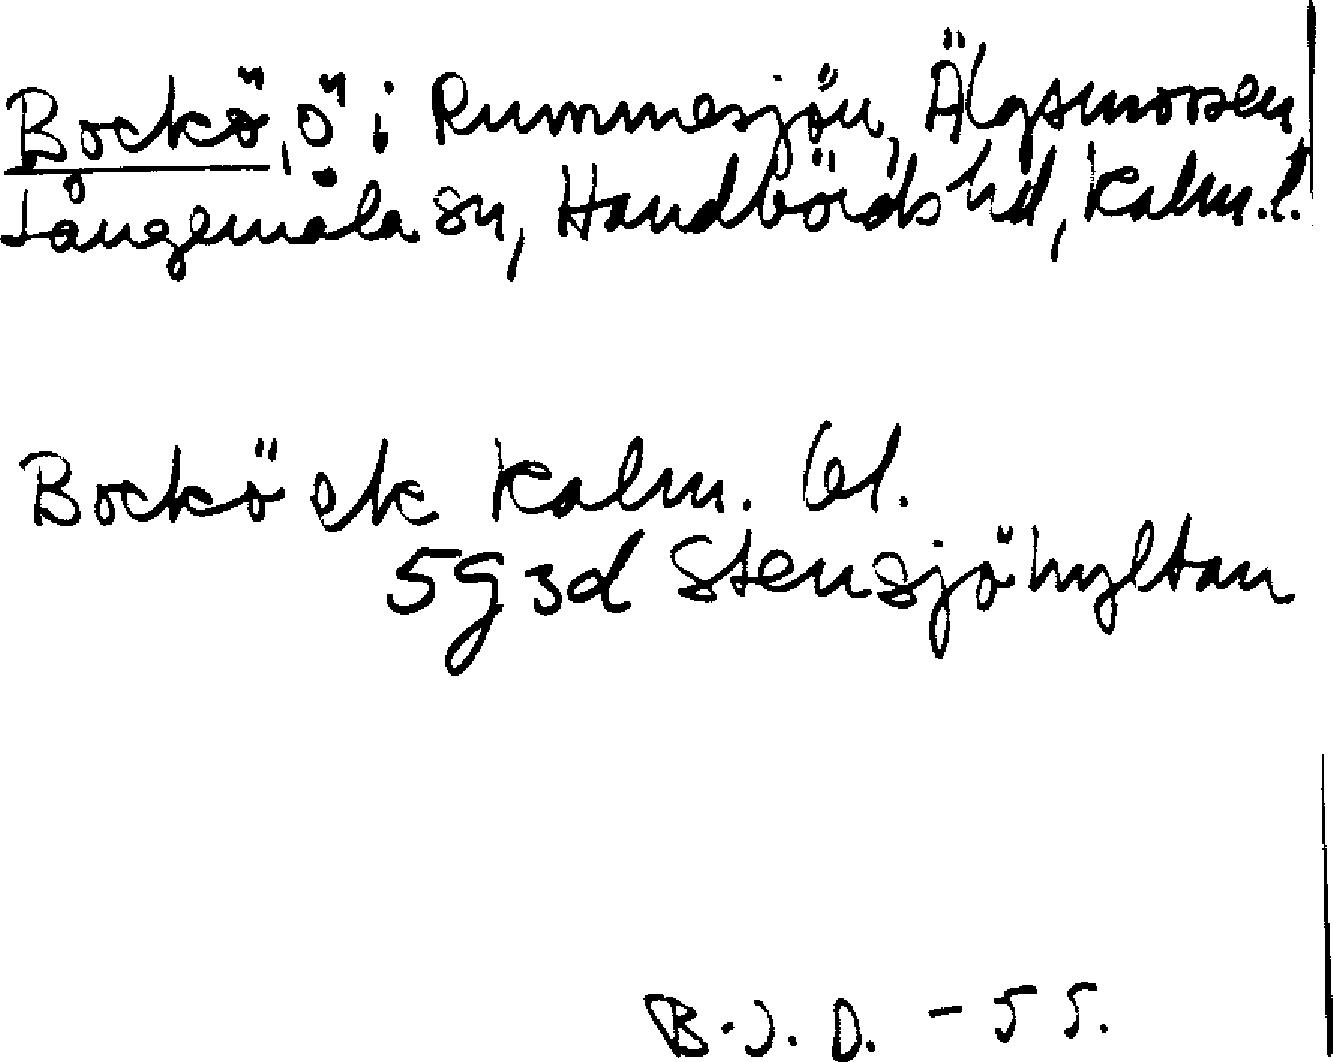 Bockö, ö i Rummesjön, Älgsmossen
Långemåla sn, Handbörds hd, Kalm.l.
Bockö ek Kalm. bl.
5g3d Stensjöhyltan
B.J.D. - 55.